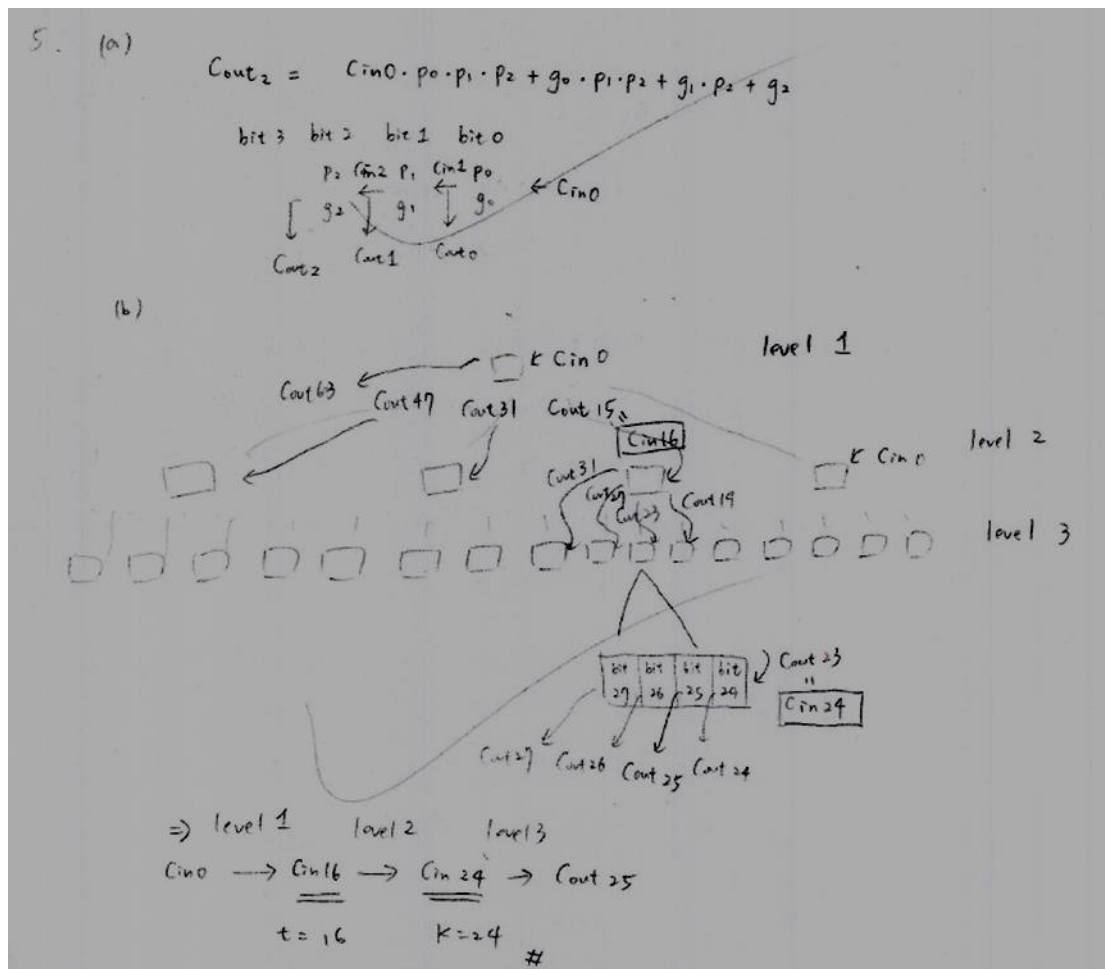 5. (a)
Cout2 = Cin0·p0·p1·p2 + g0·p1·p2 + g1·p2 + g2
bit 3 bit 2 bit 1 bit 0
p2 Cin2 p1 Cin1 p0
g2 g1 g0 ← Cin0
Cout2 Cout1 Cout0
(b)
level 1
Cin0
Cout63 Cout47 Cout31 Cout15
Cin16
level 2
Cin0
Cout31
Cout27 Cout19
Cout23
level 3
bit 27 bit 26 bit 25 bit 24
Cout23
"
Cin24
Cout27 Cout26 Cout25 Cout24
⇒ level 1 level 2 level 3
Cin0 → Cin16 → Cin24 → Cout25
t=16 k=24 #